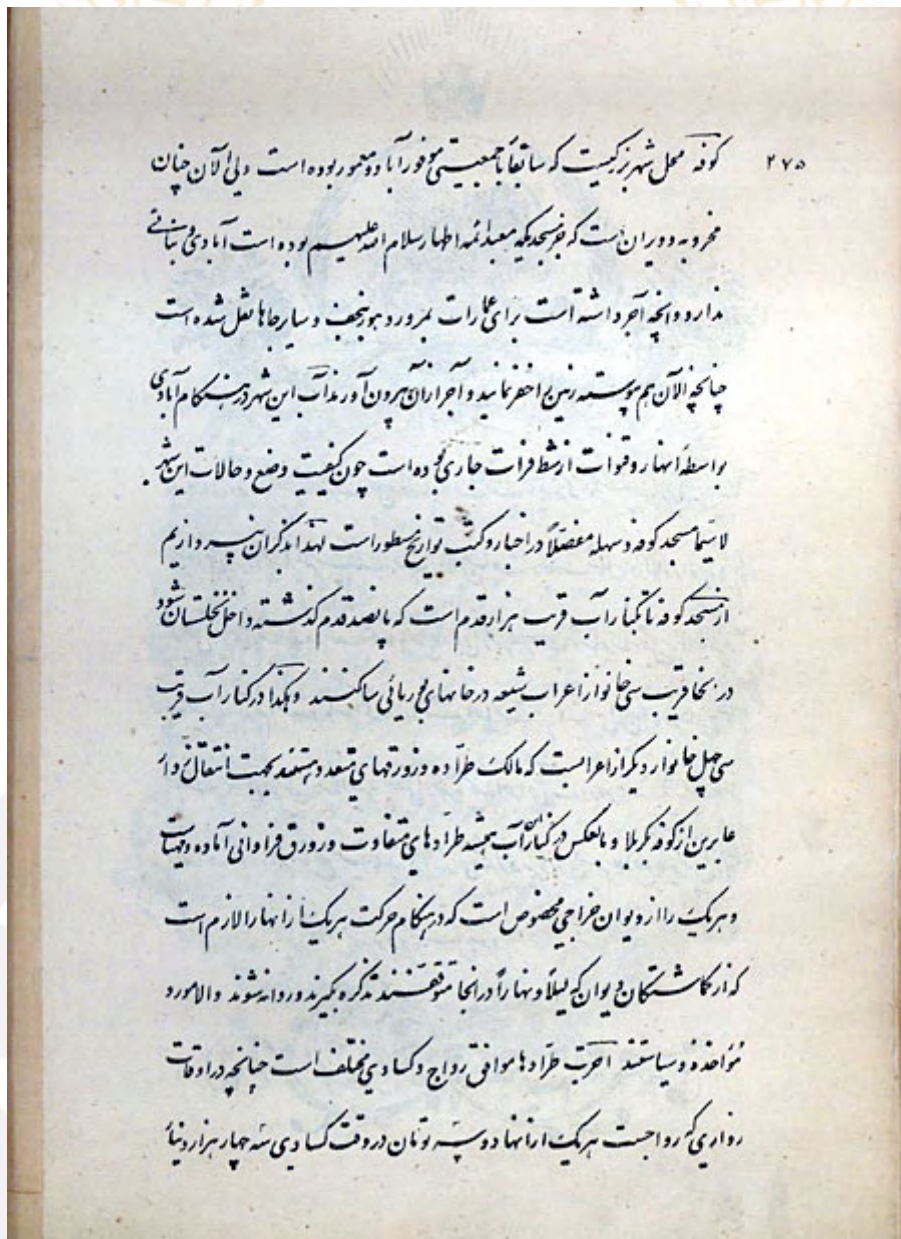 ۲۷۵
کوفه محل شهر بزرگیست که سابقاً با جمعیتی موفور آباد و معمور بوده است ولی الآن چنان
مخروبه و ویران است که جز مسجدیکه معبد ائمه اطهار سلام الله علیهم بوده است آبادی و بنائی
ندارد و آنچه آجر داشته است برای عمارات بمرور دهور بنجف و سایر جاها نقل شده است
چنانچه الآن هم پیوسته زمین را حفر نمایند و آجر از آن بیرون آورند آب این شهر در هنگام آبادی
بواسطهٔ انهار و قنوات از شط فرات جاری بوده است چون کیفیت وضع و حالات این شهر
لاسیما مسجد کوفه و سهله مفصلاً در اخبار و کتب تواریخ مسطور است لهذا بذکر آن نپردازیم
از مسجد کوفه تا کنار آب قریب هزار قدم است که پانصد قدم گذشته داخل نخلستان شود
در آنجا قریب سی خانوار از اعراب شیعه در خانهای بوریائی ساکنند و هکذا در کنار آب قریب
سی چهل خانوار دیگر از اعرابست که مالک طرّاده و زورقهای متعدد هستند بجهت انتقال زوار
عابرین از کوفه بکربلا و بالعکس در کنار این آب همیشه طرّادهای متفاوت و زورق فراوانی آماده و مهیاست
و هریک را از دیوان خراجی مخصوص است که در هنگام حرکت هریک از آنها را لازم است
که از گماشتگان دیوان که لیلاً و نهاراً در آنجا متوقفند تذکره بگیرند و روانه شوند و الا مورد
مؤاخذه و سیاستند اجرت طرّادها موافق رواج و کسادی مختلف است چنانچه در اوقات
زواری که رواجست هریک از آنها دو سه تومان در وقت کسادی سه چهار هزار دینار